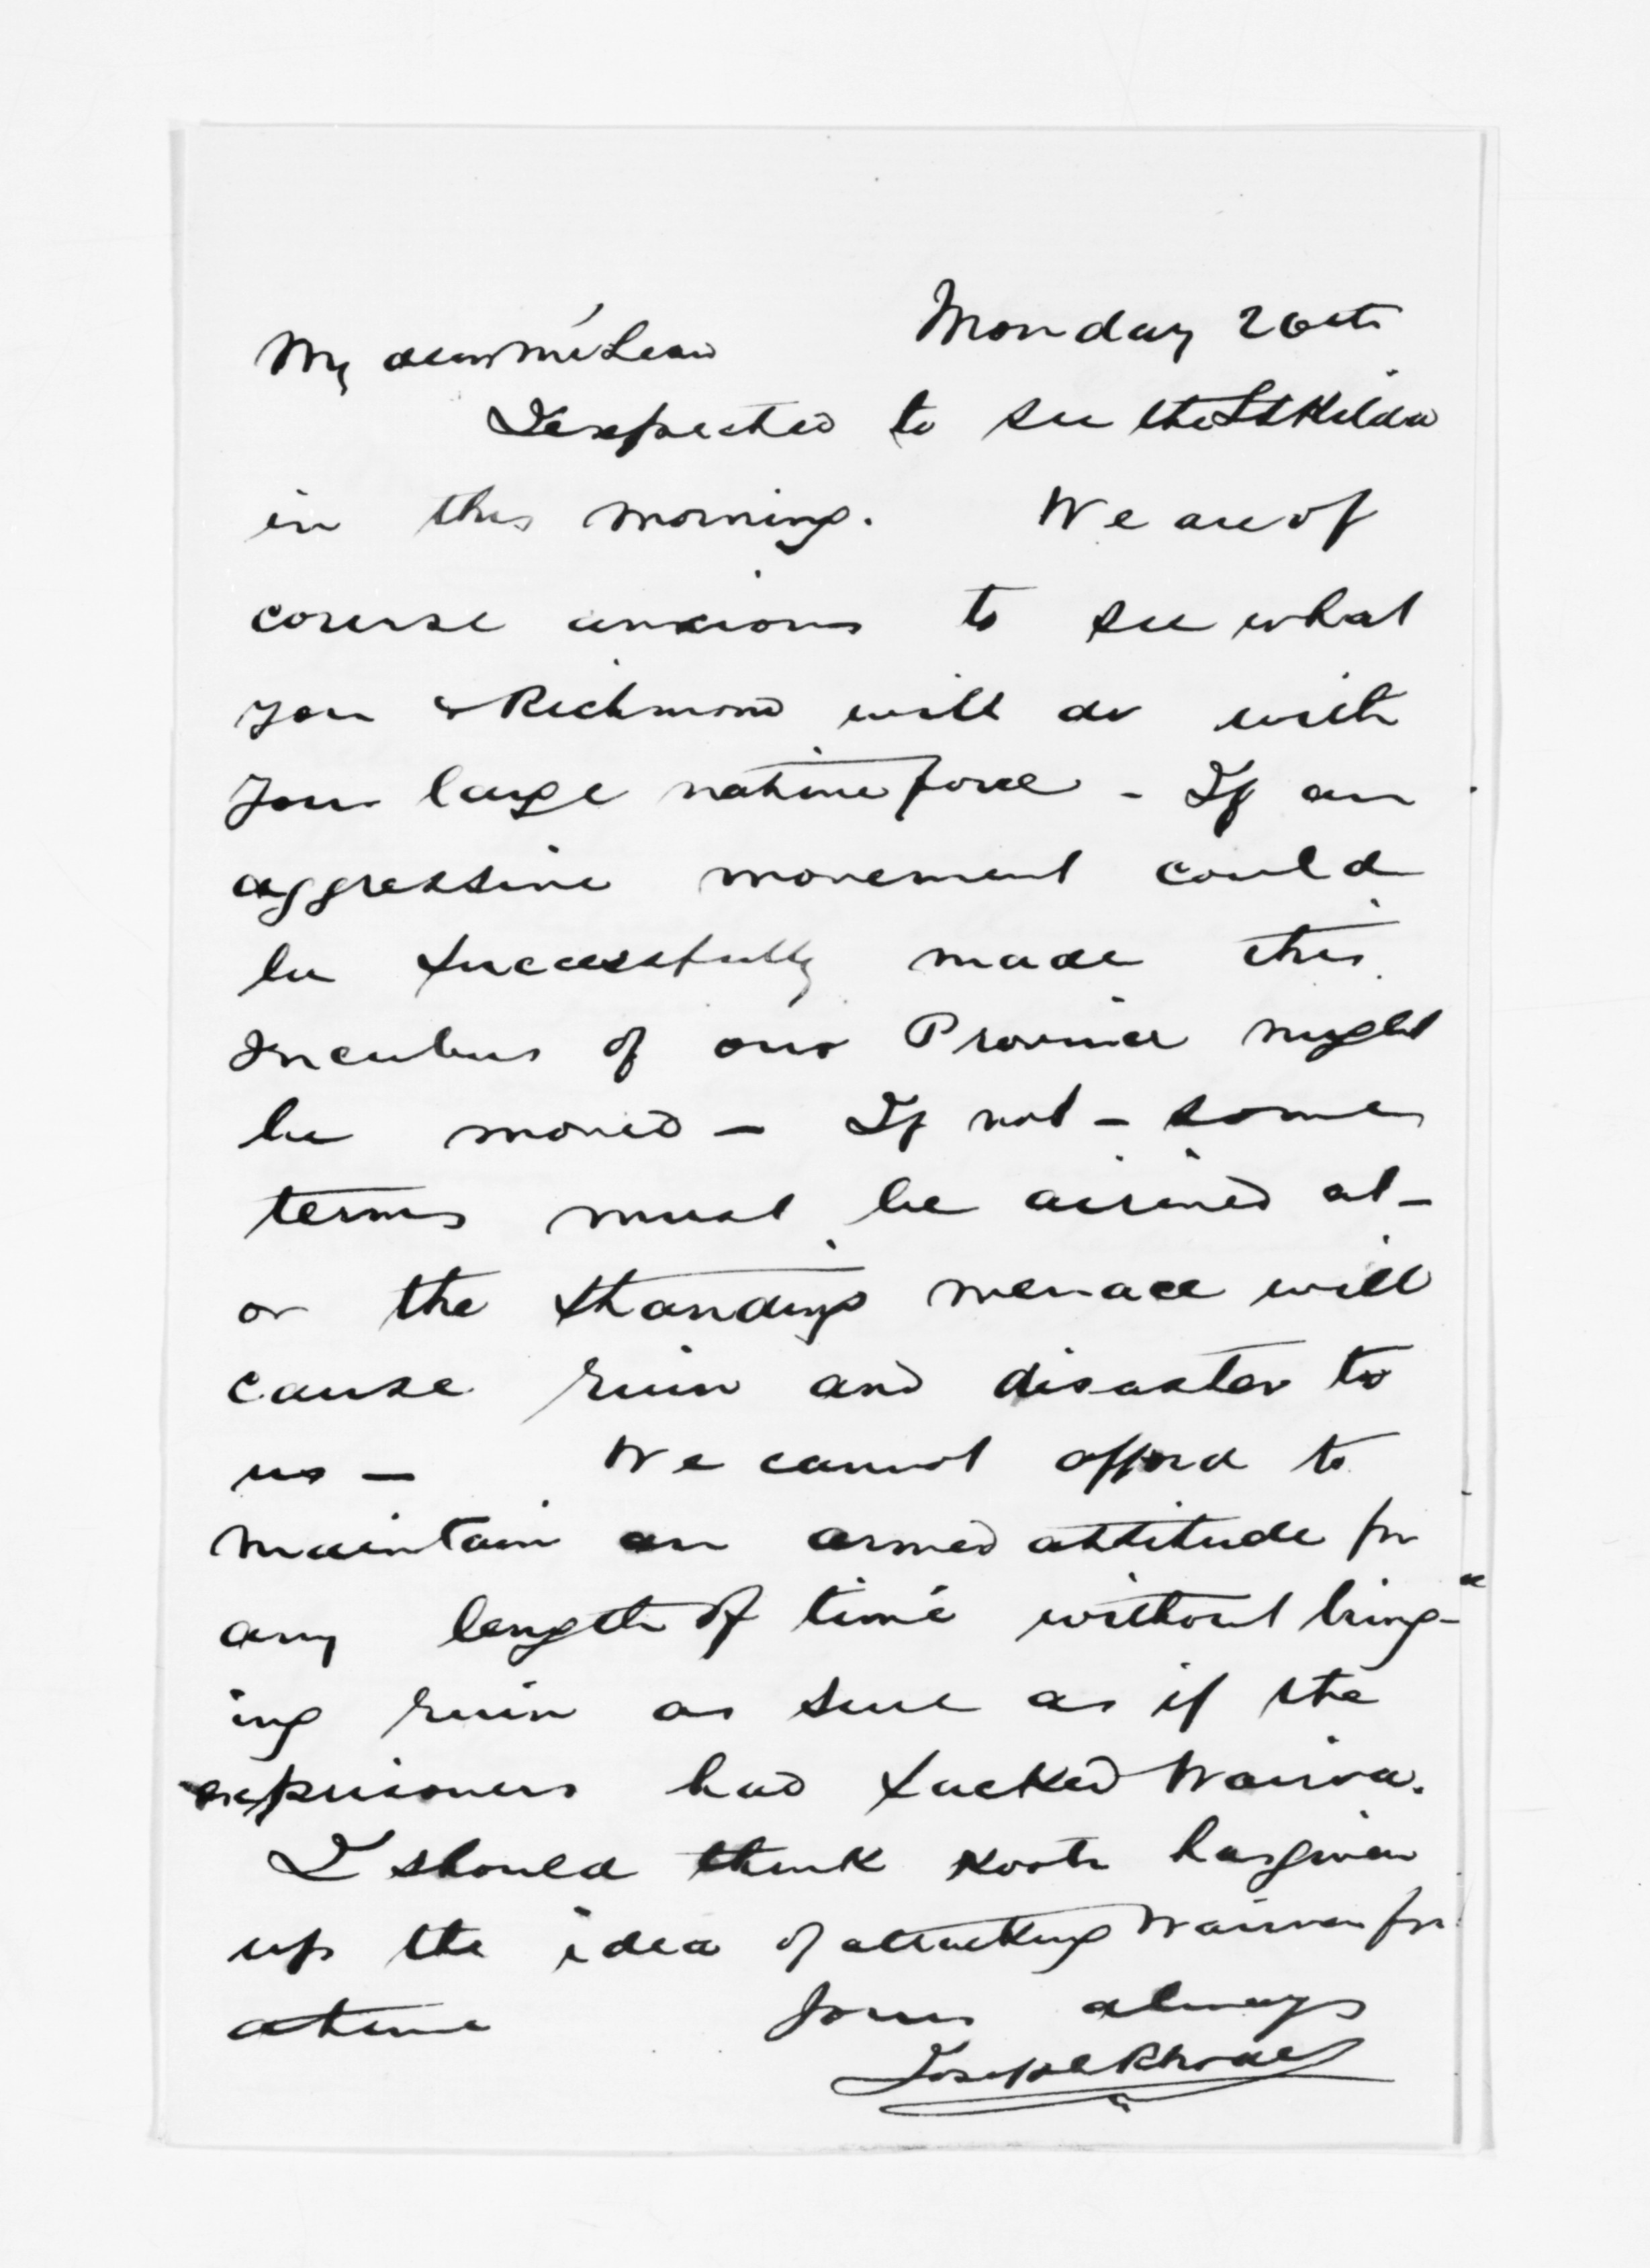 Monday 26th
My dear McLean
I expected to see the St Kilda
in this morning. We are of
course anxious to see what
you & Richmond will do with
your large native force - If an
aggressive movement could
be successfully made this
Incubus of our Province might
be moved - If not - some
terms must be arrived at -
or the standing menace will
cause ruin and disaster to
us - We cannot afford to
maintain an armed attitude for
any length of time without bring-
ing ruin as sure as if the
prisoners had sacked Wairoa.
I should think Kooti has given
up the idea of attacking Wairoa for
a time Yours always
Joseph Rhodes